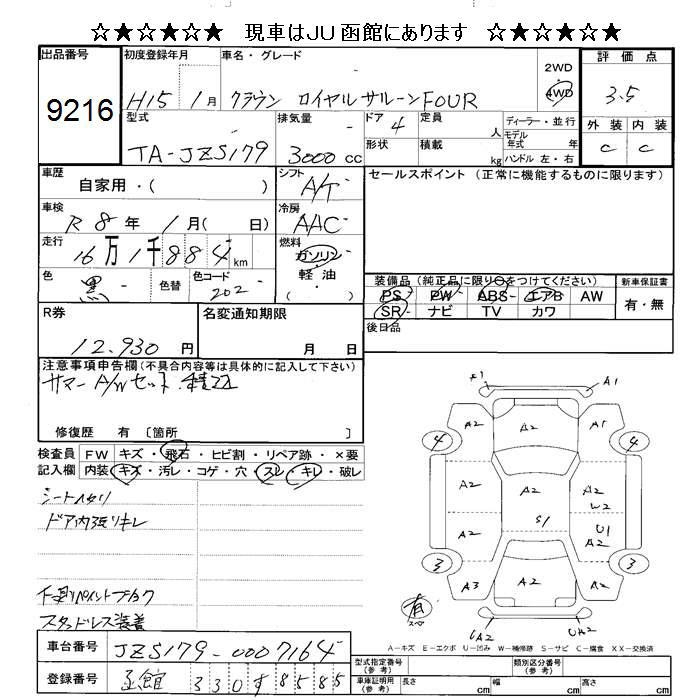 ☆★☆★☆★ 現車はJU函館にあります ☆★☆★☆★
出品番号 初度登録年月 車名・グレード 評価点
9216 H15年 1月 クラウン ロイヤルサルーンFOUR 2WD 4WD 3.5
型式 排気量 ドア 4 定員 人 ディーラー・並行 外装 内装
TA-JZS179 3000cc 形状 積載 kg モデル年式 年 ハンドル 左・右 C C
車歴 自家用・( ) シフト A/T セールスポイント (正常に機能するものに限ります)
車検 R8年 1月( 日) 冷房 AAC
走行 16万1千884km 燃料 ガソリン 軽油 ( )
色 黒 色替 色コード 202 装備品 (純正品に限り○をつけてください) 新車保証書
PS PW ABS エアB AW 有・無
SR ナビ TV カワ
R券 12,930円 名変通知期限 月 日 後日品
注意事項申告欄 (不具合内容等は具体的に記入して下さい)
サマーA/Wセット積込
修復歴 有 〔箇所 〕
検査員 FW キズ・飛石・ヒビ割・リペア跡・×要
記入欄 内装 キズ・汚レ・コゲ・穴・スレ・キレ・破レ
シートヘタリ
ドア内張リキレ
スタッドレス装着
A1
A2 A2 A1
4 4
A2 A2 A2
W2
S1 U1
A2 A2
3 3
A3 A2 A2
有 スペア
UA2 UA2
A-キズ E-エクボ U-凹み W-補修跡 S-サビ C-腐食 XX-交換済
車台番号 JZS179-0007164 型式指定番号(参考) 類別区分番号(参考)
登録番号 函館 330す8585 車庫証明用(参考) 長さ cm 幅 cm 高さ cm